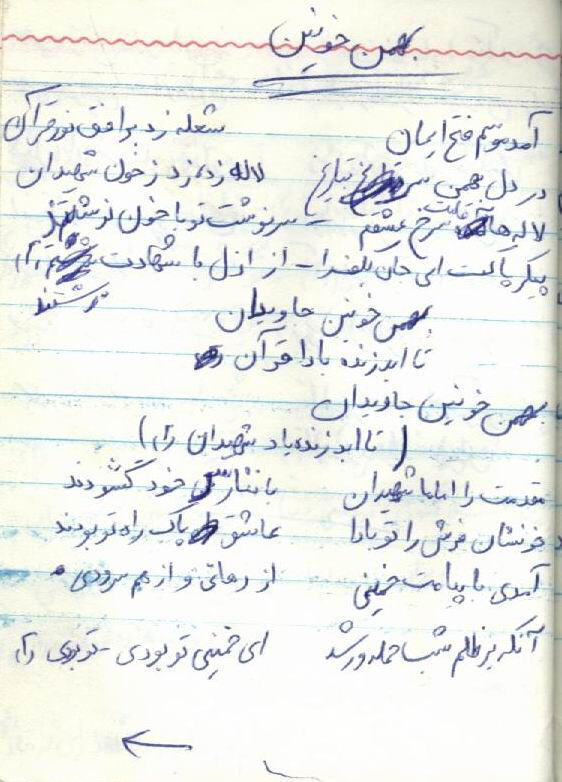 بهمن خونین
آمد موسم فتح ایمان شعله زد بر افق نور قرآن
در دل بهمن سرد تاریخ لاله زد ز خون شهیدان
لاله ها قامت سرخ عشقم - سرنوشت تو با خون نوشتند
پیکر پاکت ای جان بلفدا - از ازل با شهادت سرشتند
بهمن خونین جاویدان
تا ابد زنده بادا قرآن
بهمن خونین جاویدان
(تا ابد زنده یاد شهیدان را)
مقدمت را اماما شهیدان با نثار خود گشودند
خونشان فرش راه تو بادا عاشق پاک راه تو بودند
آمدی با پیامت خمینی از رهائی و از هم سرودی
آنکه بر ظلم شب حمله ور شد ای خمینی تو بودی - تو بودی